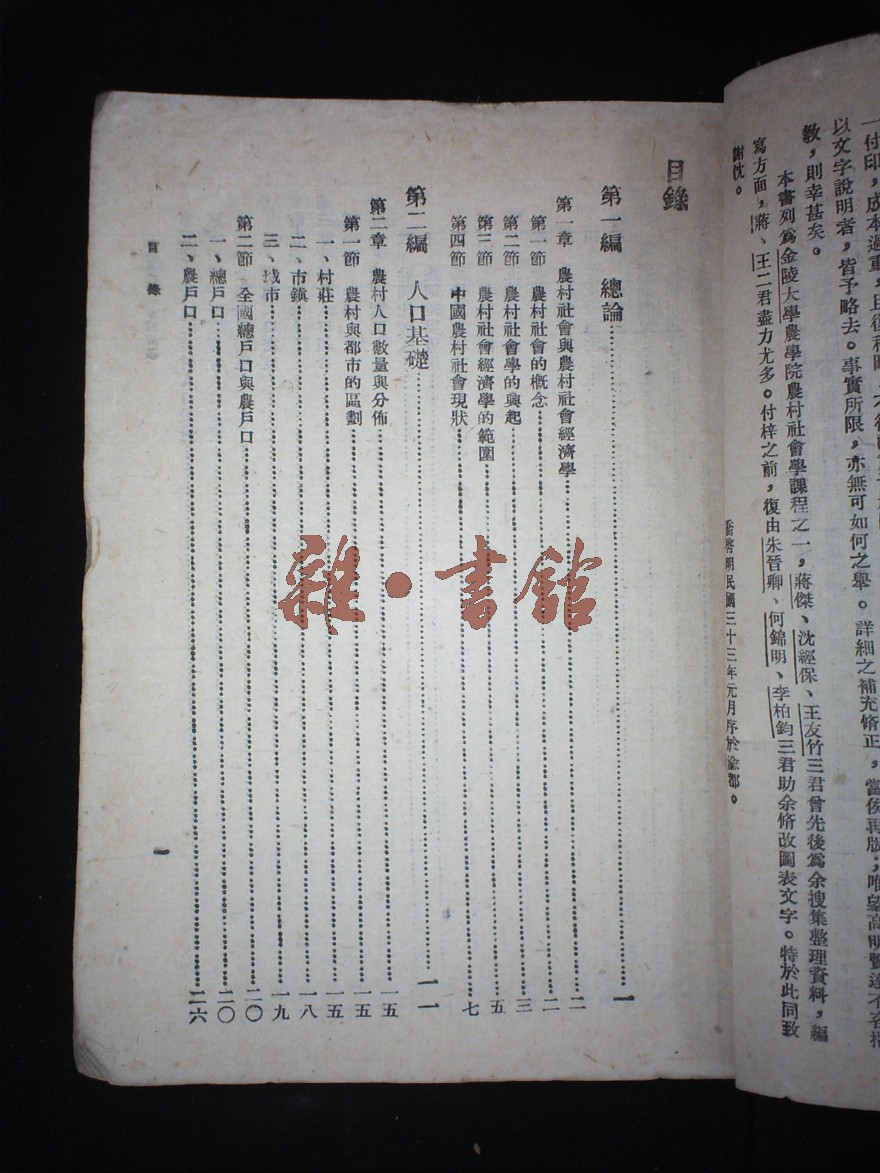 以文字說明者，皆予略去。事實所限，亦無可如何之舉。詳細之補充修正，當俟再版，唯望高明賢達不吝指
教，則幸甚矣。
本書列爲金陵大學農學院農村社會學課程之一，蔣傑、沈經保、王友竹三君曾先後爲余搜集整理資料，編
寫方面，蔣、王二君盡力尤多。付梓之前，復由朱晉卿、何錦明、李柏鈞三君助余修改圖表文字。特於此同致
謝忱。
喬啓明民國三十三年元月序於渝都。
目錄
第一編 總論……一
第一章 農村社會與農村社會經濟學……二
第一節 農村社會的概念……二
第二節 農村社會學的興起……三
第三節 農村社會經濟學的範圍……五
第四節 中國農村社會現狀……七
第二編 人口基礎……一一
第二章 農村人口數量與分佈……一五
第一節 農村與都市的區劃……一五
一、村莊……一五
二、市鎮……一八
三、城市……一九
第二節 全國總戶口與農戶口……二〇
一、總戶口……二〇
二、農戶口……二六
目錄
一
雜·書館